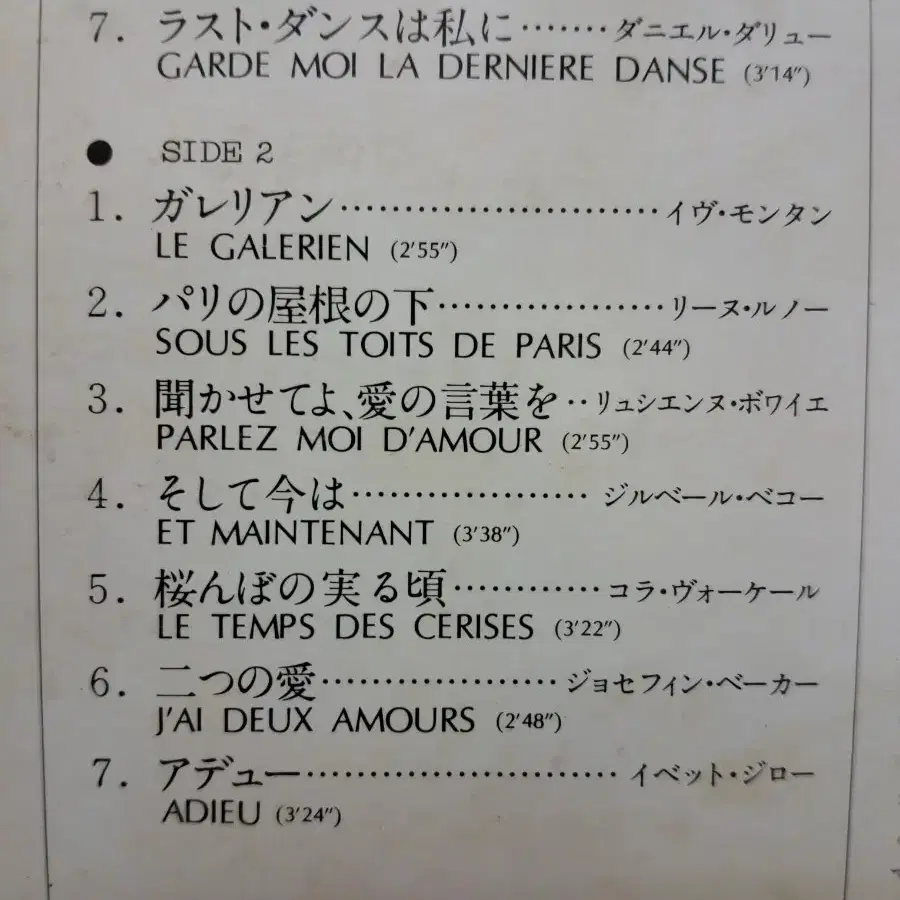 7. ラスト・ダンスは私に‥‥‥‥ダニエル・ダリュー
GARDE MOI LA DERNIERE DANSE (3′14″)
● SIDE 2
1. ガレリアン‥‥‥‥‥‥‥‥‥‥‥‥イヴ・モンタン
LE GALERIEN (2′55″)
2. パリの屋根の下‥‥‥‥‥‥‥‥‥リーヌ・ルノー
SOUS LES TOITS DE PARIS (2′44″)
3. 聞かせてよ、愛の言葉を‥リュシエンヌ・ボワイエ
PARLEZ MOI D'AMOUR (2′55″)
4. そして今は‥‥‥‥‥‥‥‥‥ジルベール・ベコー
ET MAINTENANT (3′38″)
5. 桜んぼの実る頃‥‥‥‥‥‥コラ・ヴォーケール
LE TEMPS DES CERISES (3′22″)
6. 二つの愛‥‥‥‥‥‥‥‥‥ジョセフィン・ベーカー
J'AI DEUX AMOURS (2′48″)
7. アデュー‥‥‥‥‥‥‥‥‥‥‥‥イベット・ジロー
ADIEU (3′24″)